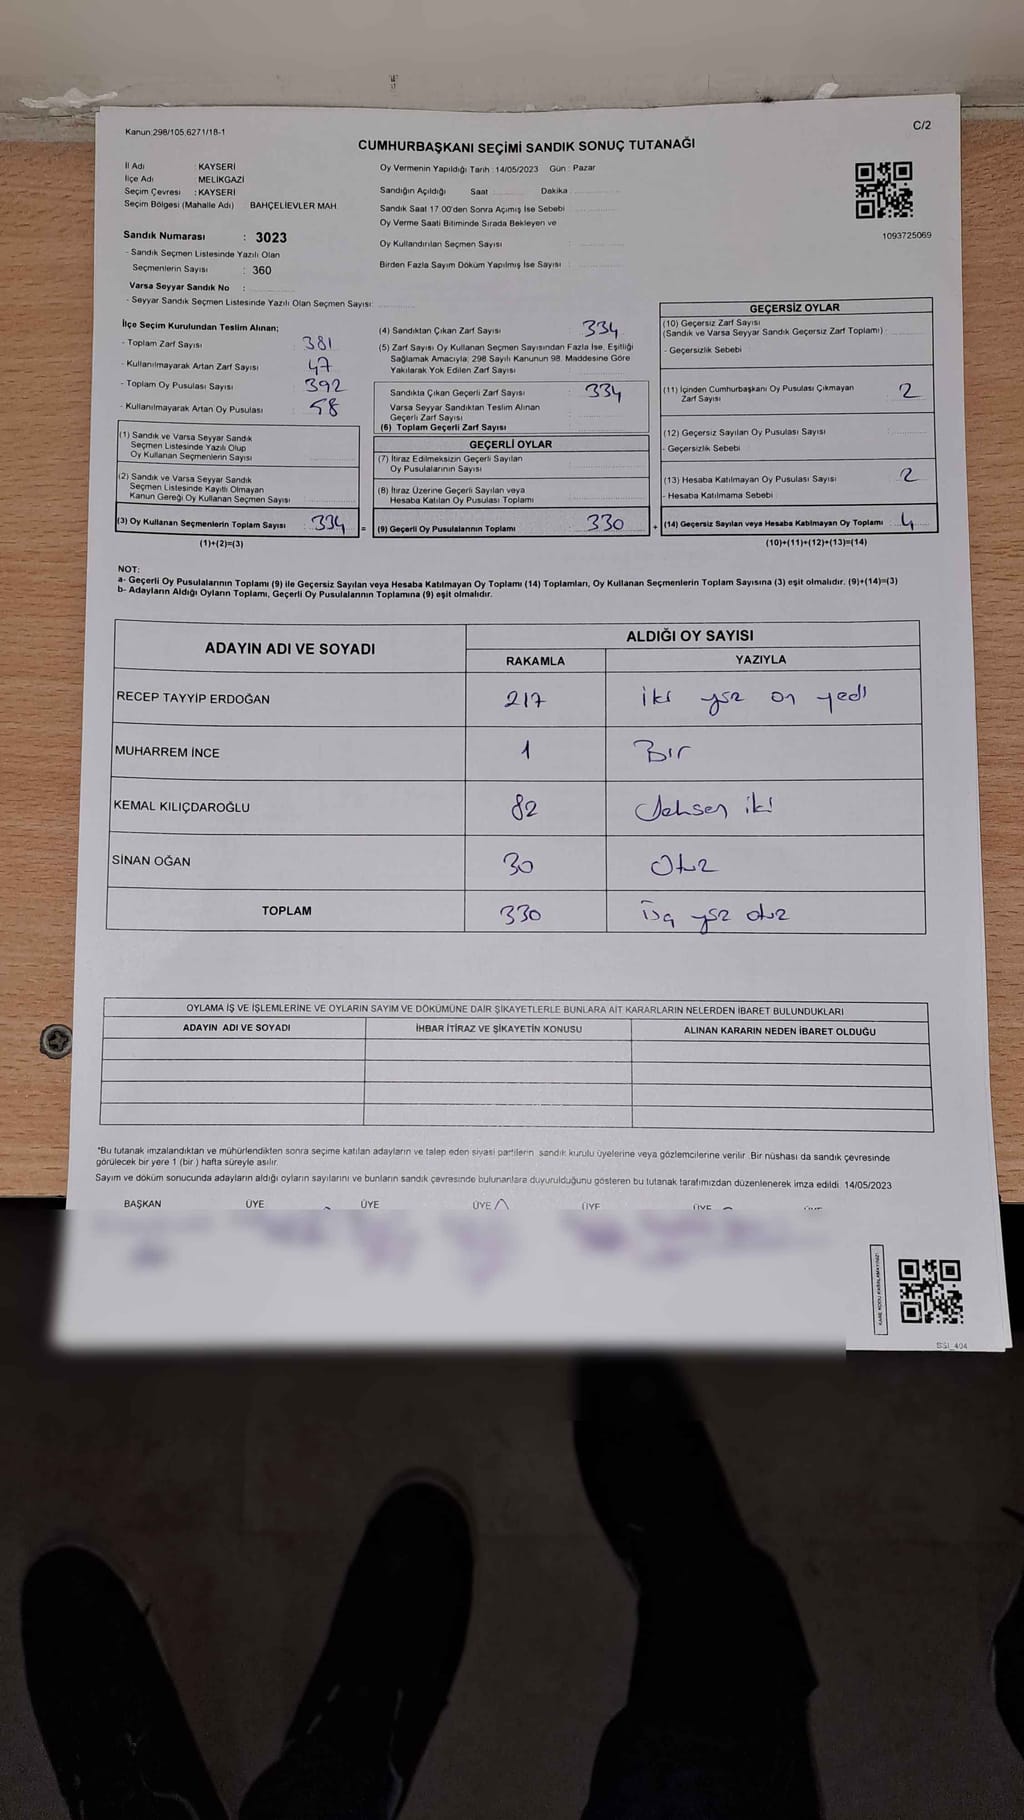 Kanun:298/105,6271/18-1
C/2
CUMHURBAŞKANI SEÇİMİ SANDIK SONUÇ TUTANAĞI
İl Adı : KAYSERİ
İlçe Adı : MELİKGAZİ
Seçim Çevresi : KAYSERİ
Seçim Bölgesi (Mahalle Adı) BAHÇELİEVLER MAH.
Sandık Numarası : 3023
- Sandık Seçmen Listesinde Yazılı Olan
Seçmenlerin Sayısı : 360
Varsa Seyyar Sandık No :
- Seyyar Sandık Seçmen Listesinde Yazılı Olan Seçmen Sayısı:
Oy Vermenin Yapıldığı Tarih : 14/05/2023 Gün : Pazar
Sandığın Açıldığı Saat Dakika
Sandık Saat 17.00'den Sonra Açımış İse Sebebi
Oy Verme Saati Bitiminde Sırada Bekleyen ve
Oy Kullandırılan Seçmen Sayısı :
Birden Fazla Sayım Döküm Yapılmış İse Sayısı :
1093725069
İlçe Seçim Kurulundan Teslim Alınan;
- Toplam Zarf Sayısı : 381
- Kullanılmayarak Artan Zarf Sayısı : 47
- Toplam Oy Pusulası Sayısı : 392
- Kullanılmayarak Artan Oy Pusulası : 58
(1) Sandık ve Varsa Seyyar Sandık
Seçmen Listesinde Yazılı Olup
Oy Kullanan Seçmenlerin Sayısı
(2) Sandık ve Varsa Seyyar Sandık
Seçmen Listesinde Kayıtlı Olmayan
Kanun Gereği Oy Kullanan Seçmen Sayısı
(3) Oy Kullanan Seçmenlerin Toplam Sayısı : 334 =
(1)+(2)=(3)
(4) Sandıktan Çıkan Zarf Sayısı : 334
(5) Zarf Sayısı Oy Kullanan Seçmen Sayısından Fazla İse, Eşitliği
Sağlamak Amacıyla; 298 Sayılı Kanunun 98. Maddesine Göre
Yakılarak Yok Edilen Zarf Sayısı
Sandıkta Çıkan Geçerli Zarf Sayısı : 334
Varsa Seyyar Sandıktan Teslim Alınan
Geçerli Zarf Sayısı
(6) Toplam Geçerli Zarf Sayısı
GEÇERLİ OYLAR
(7) İtiraz Edilmeksizin Geçerli Sayılan
Oy Pusulalarının Sayısı
(8) İtiraz Üzerine Geçerli Sayılan veya
Hesaba Katılan Oy Pusulası Toplamı
(9) Geçerli Oy Pusulalarının Toplamı : 330 +
GEÇERSİZ OYLAR
(10) Geçersiz Zarf Sayısı
(Sandık ve Varsa Seyyar Sandık Geçersiz Zarf Toplamı) :
- Geçersizlik Sebebi
(11) İçinden Cumhurbaşkanı Oy Pusulası Çıkmayan
Zarf Sayısı : 2
(12) Geçersiz Sayılan Oy Pusulası Sayısı
- Geçersizlik Sebebi
(13) Hesaba Katılmayan Oy Pusulası Sayısı : 2
- Hesaba Katılmama Sebebi
(14) Geçersiz Sayılan veya Hesaba Katılmayan Oy Toplamı : 4
(10)+(11)+(12)+(13)=(14)
NOT:
a- Geçerli Oy Pusulalarının Toplamı (9) ile Geçersiz Sayılan veya Hesaba Katılmayan Oy Toplamı (14) Toplamları, Oy Kullanan Seçmenlerin Toplam Sayısına (3) eşit olmalıdır. (9)+(14)=(3)
b- Adayların Aldığı Oyların Toplamı, Geçerli Oy Pusulalarının Toplamına (9) eşit olmalıdır.
ADAYIN ADI VE SOYADI ALDIĞI OY SAYISI
RAKAMLA YAZIYLA
RECEP TAYYİP ERDOĞAN 217 iki yüz on yedi
MUHARREM İNCE 1 Bir
KEMAL KILIÇDAROĞLU 82 Seksen iki
SİNAN OĞAN 30 Otuz
TOPLAM 330 Üç yüz otuz
OYLAMA İŞ VE İŞLEMLERİNE VE OYLARIN SAYIM VE DÖKÜMÜNE DAİR ŞİKAYETLERLE BUNLARA AİT KARARLARIN NELERDEN İBARET BULUNDUKLARI
ADAYIN ADI VE SOYADI İHBAR İTİRAZ VE ŞİKAYETİN KONUSU ALINAN KARARIN NEDEN İBARET OLDUĞU
*Bu tutanak imzalandıktan ve mühürlendikten sonra seçime katılan adayların ve talep eden siyasi partilerin sandık kurulu üyelerine veya gözlemcilerine verilir. Bir nüshası da sandık çevresinde
görülecek bir yere 1 (bir ) hafta süreyle asılır.
Sayım ve döküm sonucunda adayların aldığı oyların sayılarını ve bunların sandık çevresinde bulunanlara duyurulduğunu gösteren bu tutanak tarafımızdan düzenlenerek imza edildi. 14/05/2023
BAŞKAN ÜYE ÜYE ÜYE ÜYE ÜYE